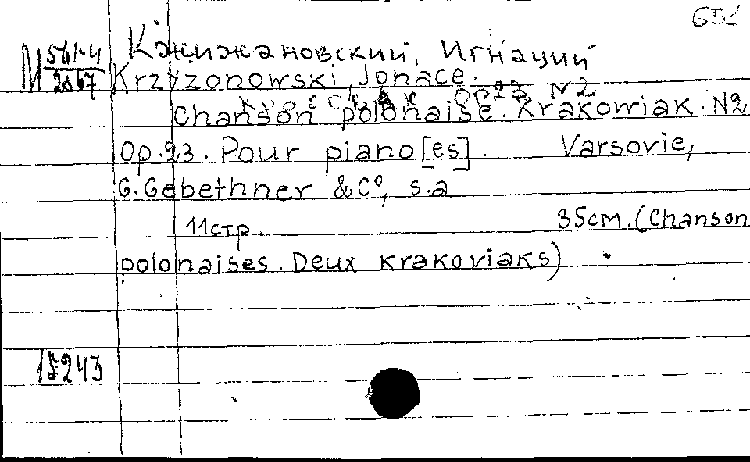 651
Кжижановский, Игнаций
М 561-4
2867
Krzyzonowski, Jonace.
Op 23 N2
Chanson polonaise. Krakowiak. N2
Op. 23. Pour piano [es]. Varsovie,
G. Gebethner & Cº, s.a
11 стр. 35 cm. (Chanson
polonaises. Deux krakoviaks)
15243